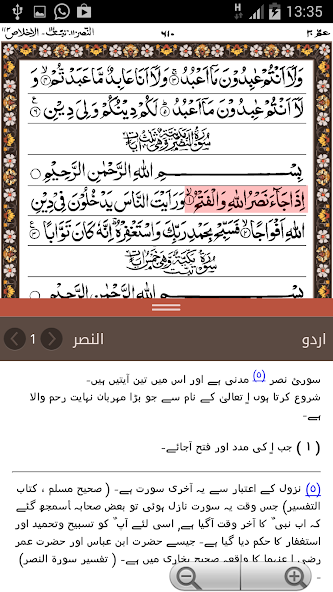 13:35
عم ۳۰ ۶۱۰ النصر ۱۱۰ تبت ۱۱۱ الاخلاص ۱۱۲
وَلَآ اَنْتُمْ عٰبِدُوْنَ مَآ اَعْبُدُ ۚ وَلَآ اَنَا عَابِدٌ مَّا عَبَدْتُّمْ ۙ
وَلَآ اَنْتُمْ عٰبِدُوْنَ مَآ اَعْبُدُ ؕ لَكُمْ دِيْنُكُمْ وَلِيَ دِيْنِ
بِسْمِ اللهِ الرَّحْمٰنِ الرَّحِيْمِ
اِذَا جَآءَ نَصْرُ اللهِ وَالْفَتْحُ ۙ وَرَاَيْتَ النَّاسَ يَدْخُلُوْنَ فِيْ دِيْنِ
اللهِ اَفْوَاجًا ۙ فَسَبِّحْ بِحَمْدِ رَبِّكَ وَاسْتَغْفِرْهُ ؕ اِنَّهٗ كَانَ تَوَّابًا
بِسْمِ اللهِ الرَّحْمٰنِ الرَّحِيْمِ
اردو النصر 1
سورئ نصر (٥) مدنی ہے اور اس میں تین آیتیں ہیں-
شروع کرتا ہوں اٖ تعالیٰ کے نام سے جو بڑا مہربان نہایت رحم والا
ہے-
( ١ ) جب اٖ کی مدد اور فتح آجائے-
(٥) نزول کے اعتبار سے یہ آخری سورت ہے- ( صحیح مسلم ، کتاب
التفسیر) جس وقت یہ سورت نازل ہوئی تو بعض صحابہ سمجھ گئے
کہ اب نبی کا آخر وقت آگیا ہے، اسی لئے آپ کو تسبیح وتحمید اور
استغفار کا حکم دیا گیا ہے- جیسے حضرت ابن عباس اور حضرت عمر
رضی اٖ عنہما کا واقعہ صحیح بخاری میں ہے- ( تفسیر سورة النصر)